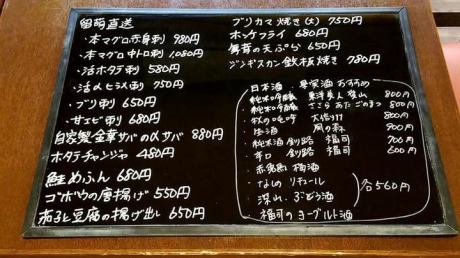 留萌直送
・本マグロ赤身刺 980円
・本マグロ中トロ刺 1080円
・活ホタテ刺 580円
・活〆ヒラメ刺 750円
・ブリ刺 650円
・甘エビ刺 680円
自家製金華サバの〆サバ 880円
ホタテチャンジャ 480円
鮭めふん 680円
ゴボウの唐揚げ 550円
茄子と豆腐の揚げ出し 650円
ブリカマ焼き(大) 750円
ホッケフライ 680円
舞茸の天ぷら 650円
ジンギスカン鉄板焼き 780円
日本酒・果実酒 おすすめ
・純米吟醸 東洋美人 800円
・純米吟醸 あたごのまつ 800円
・秋の 吟 800円
・生酒 風の森 900円
・純米酒 釧路 福司 700円
・辛口 釧路 福司 600円
・赤 梅酒
・なしのリキュール
・深山ぶどう酒
・福司のヨーグルト酒
各560円